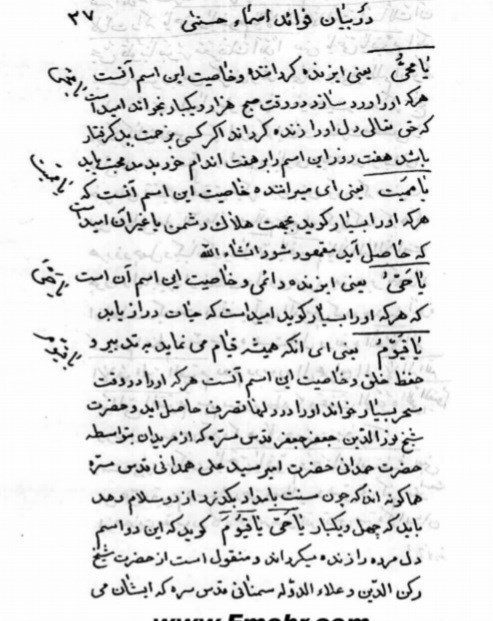 دربیان فوائد اسماء حسنی ۳۷
یا محیی یعنی ایزنده کرداننده و خاصیت این اسم آنست
هرکه اورا ورد سازد در وقت صبح هزار و یکبار بخواند امید است
که حق تعالی دل اورا زنده کرداند اکر کسی بزحمت بد کرفتار
باشد هفت روز این اسم را بر هفت اندام خود بدمد صحت یابد
یا ممیت یعنی ای میراننده خاصیت این اسم آنست که
هرکه اورا بسیار کوید بجهت هلاک دشمن یا غیر آن امید است
که حاصل آید مقصود شود انشاء الله
یا حی یعنی ایزنده دائمی و خاصیت این اسم آن است
که هرکه اورا بسیار کوید امید است که حیات دراز یابد
یا قیوم یعنی ای آنکه همیشه قیام می نماید به تدبیر و
حفظ خلق و خاصیت این اسم آنست هرکه اورا در وقت
سحر بسیار خواند اورا در دلها تصرف حاصل اید و حضرت
شیخ نورالدین جعفر قدس سره که از مریدان بواسطه
حضرت همدانی حضرت امیر سید علی همدانی قدس سره
اند که چون سنت بامداد بکذرد از دو سلام دهد
باید که چهل و یکبار یا حی یا قیوم کوید که این دو اسم
دل مرده را زنده میکرداند و منقول است از حضرت شیخ
رکن الدین و علاء الدوله سمنانی قدس سره که ایشان می
یا محیی
یا ممیت
یا حی
یا قیوم